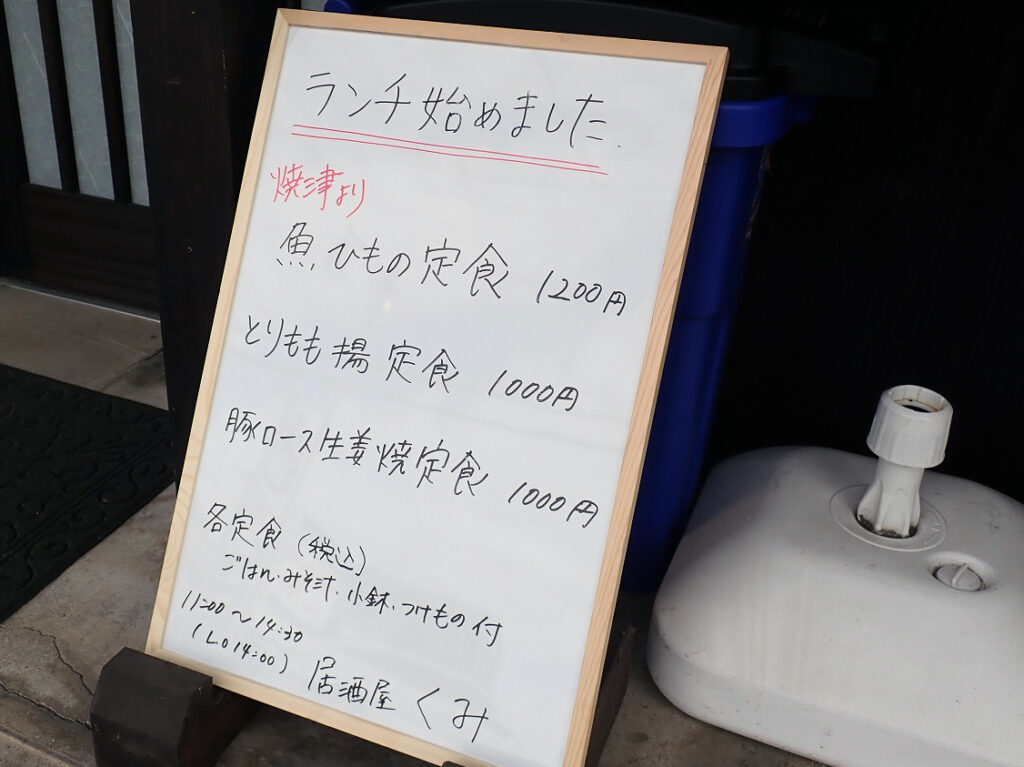 ランチ始めました.
焼津より
魚ひもの定食 1200円
とりもも揚定食 1000円
豚ロース生姜焼定食 1000円
各定食(税込)
ごはん・みそ汁、小鉢、つけもの付
11:00〜14:30
(LO 14:00)
居酒屋 くみ